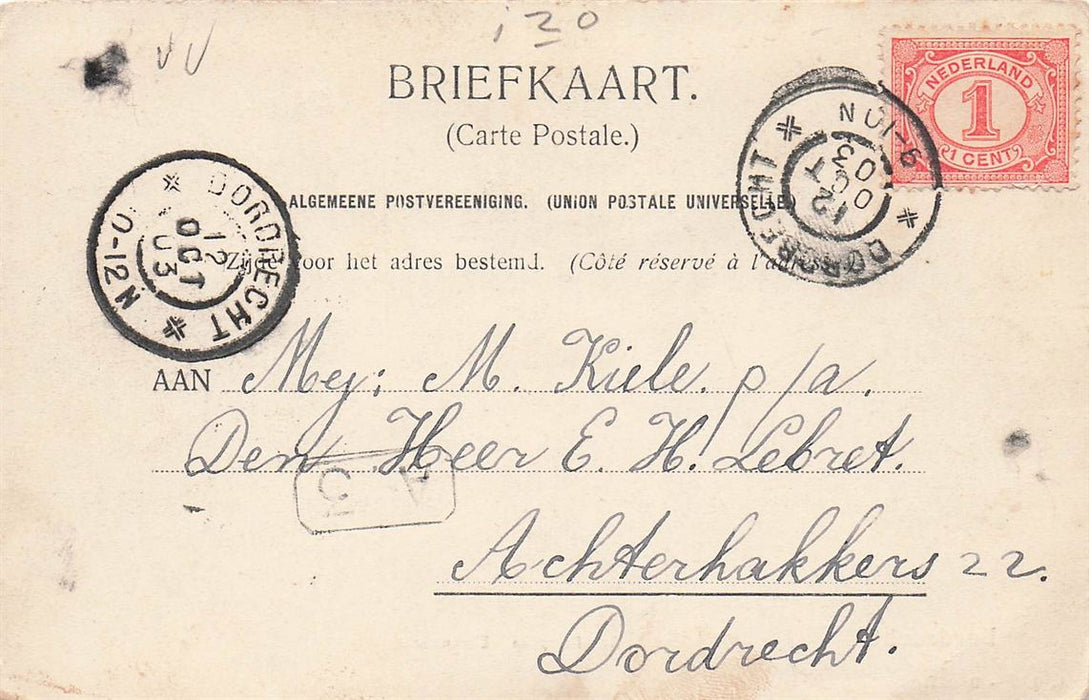 120
BRIEFKAART.
(Carte Postale.)
NEDERLAND
1
1 CENT
DORDRECHT
9-10N
12 OCT 03
ALGEMEENE POSTVEREENIGING. (UNION POSTALE UNIVERSELLE)
DORDRECHT
12
OCT
03
0-12N
Zijde voor het adres bestemd. (Côté réservé à
AAN Mej: M. Kiele. p/a.
Den Heer E. H. Lebret.
A
3
Achterhakkers 22.
Dordrecht.